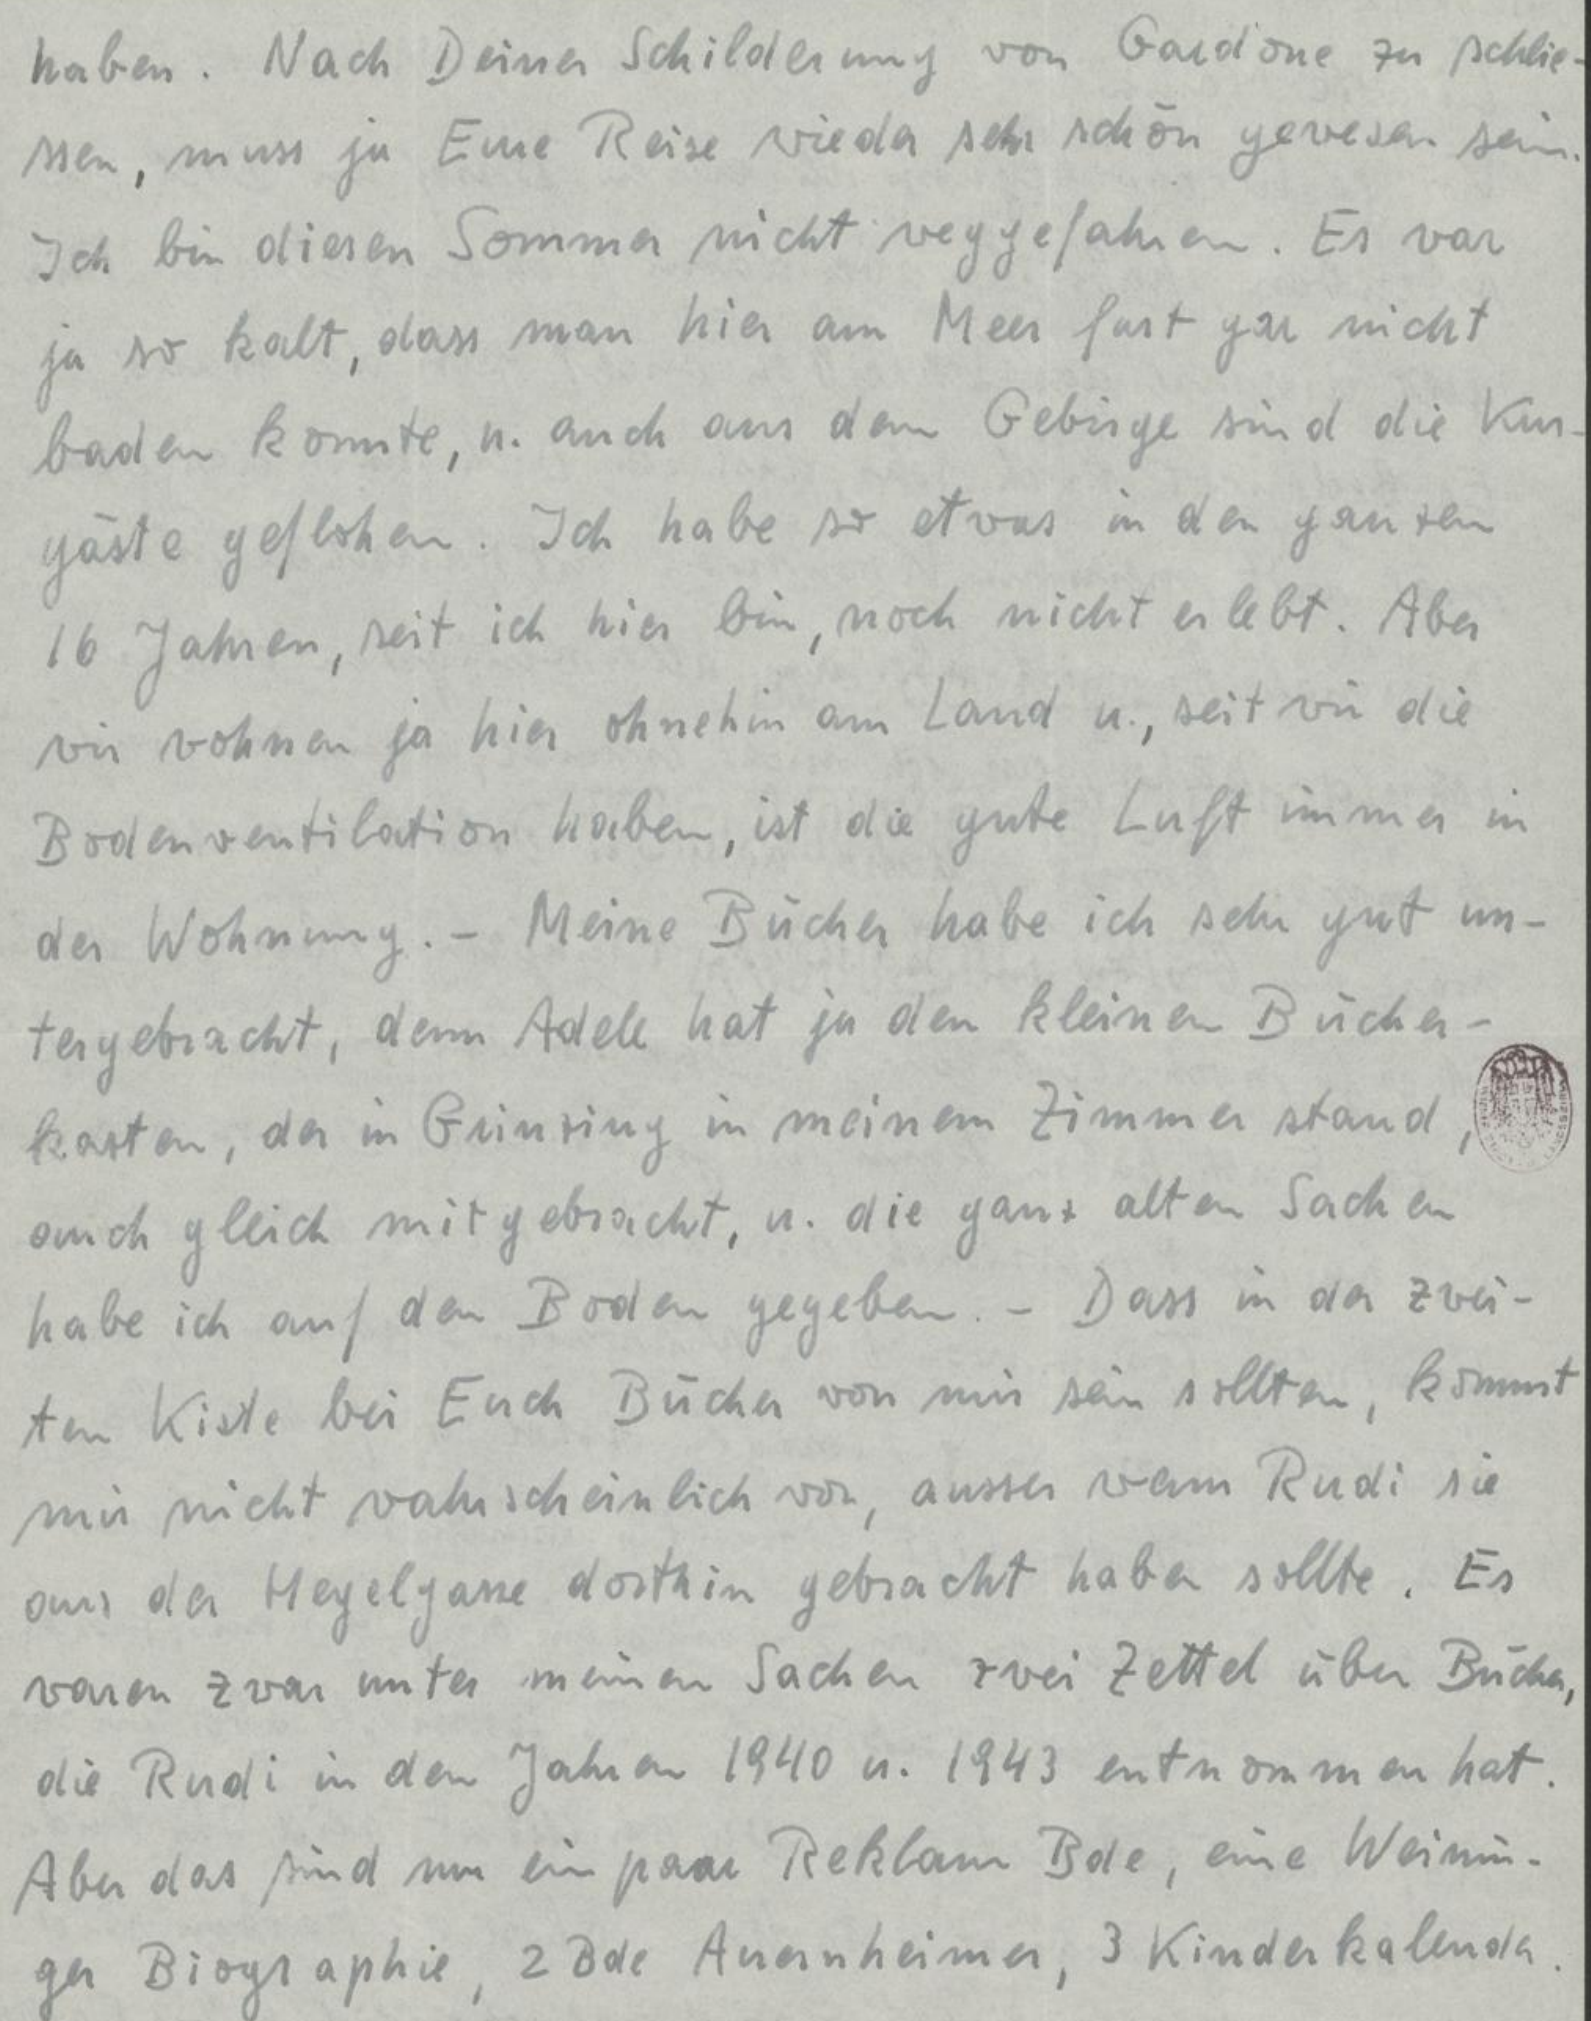 haben. Nach Deiner Schilderung von Gardone zu schlie-
ssen, muss ja Eure Reise wieder sehr schön gewesen sein.
Ich bin diesen Sommer nicht weggefahren. Es war
ja so kalt, dass man hier am Meer fast gar nicht
baden konnte, u. auch aus dem Gebirge sind die Kur-
gäste geflohen. Ich habe so etwas in den ganzen
16 Jahren, seit ich hier bin, noch nicht erlebt. Aber
wir wohnen ja hier ohnehin am Land u., seit wir die
Bodenventilation haben, ist die gute Luft immer in
der Wohnung. - Meine Bücher habe ich sehr gut un-
tergebracht, denn Adele hat ja den kleinen Bücher-
kasten, der in Grinzing in meinem Zimmer stand,
auch gleich mitgebracht, u. die ganz alten Sachen
habe ich auf den Boden gegeben. - Dass in der zwei-
ten Kiste bei Euch Bücher von mir sein sollten, kommt
mir nicht wahrscheinlich vor, ausser wenn Rudi sie
aus der Hegelgasse dorthin gebracht haben sollte. Es
waren zwar unter meinen Sachen zwei Zettel über Bücher,
die Rudi in den Jahren 1940 u. 1943 entnommen hat.
Aber das sind nur ein paar Reklam Bde, eine Weinin-
ger Biographie, 2 Bde Auernheimer, 3 Kinderkalender.